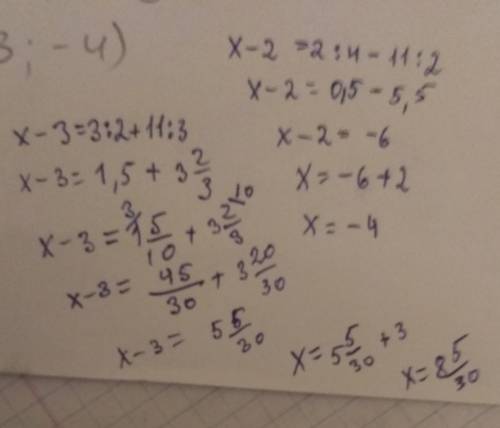 3; -4)
x-2 =2:4-11:2
x-2= 0,5-5,5
x-2= -6
x=-6+2
x=-4
x-3=3:2+11:3
x-3= 1,5 + 3 2/3
x-3= 1 5/10 + 3 2/3
x-3= 45/30 + 3 20/30
x-3= 5 5/30
x=5 5/30 +3
x=8 5/30